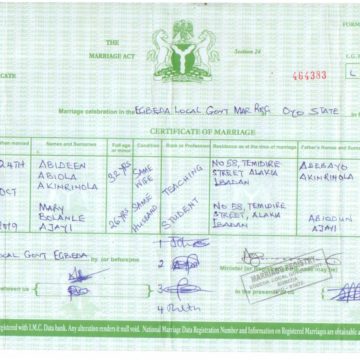 THE
MARRIAGE ACT
Section 24
FORM
L.G.
CATE
464383
L
Marriage celebration in the EGBEDA LOCAL GOVT MAR REG OYO STATE
CERTIFICATE OF MARRIAGE
When married Names and Surnames Full age or minor Condition Rank or Profession Residence as at the time of marriage Father's Names and Surname
24TH ABIDEEN 32YRS TEACHING NO 58, TEMIDIRE ADEBAYO
ABIOLA STREET ALAKIA AKINRINOLA
OCT AKINRINOLA IBADAN
MARY 26YRS STUDENT NO 58, TEMIDIRE
BOLANLE STREET, ALAKIA ABIODUN
2019 AJAYI IBADAN AJAYI
LOCAL GOVT EGBEDA
by (or before) me
1
2
3
4
MARRIAGE REGISTRY
In the presence of us
registered with I.M.C. Data bank. Any alteration renders it null void. National Marriage Data Registration Number and Information on Registered Marriages are obtainable